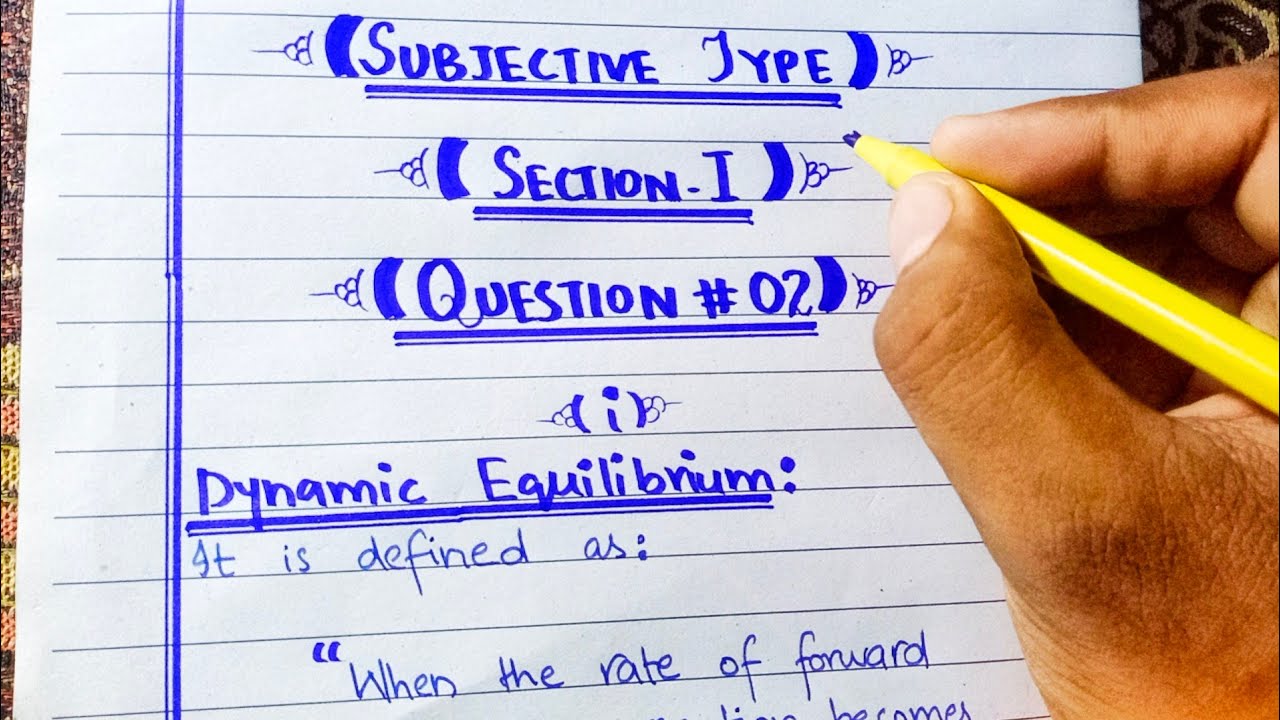 (SUBJECTIVE TYPE)
(SECTION-I)
(QUESTION # 02)
(i)
Dynamic Equilibrium:
It is defined as:
"When the rate of forward
becomes